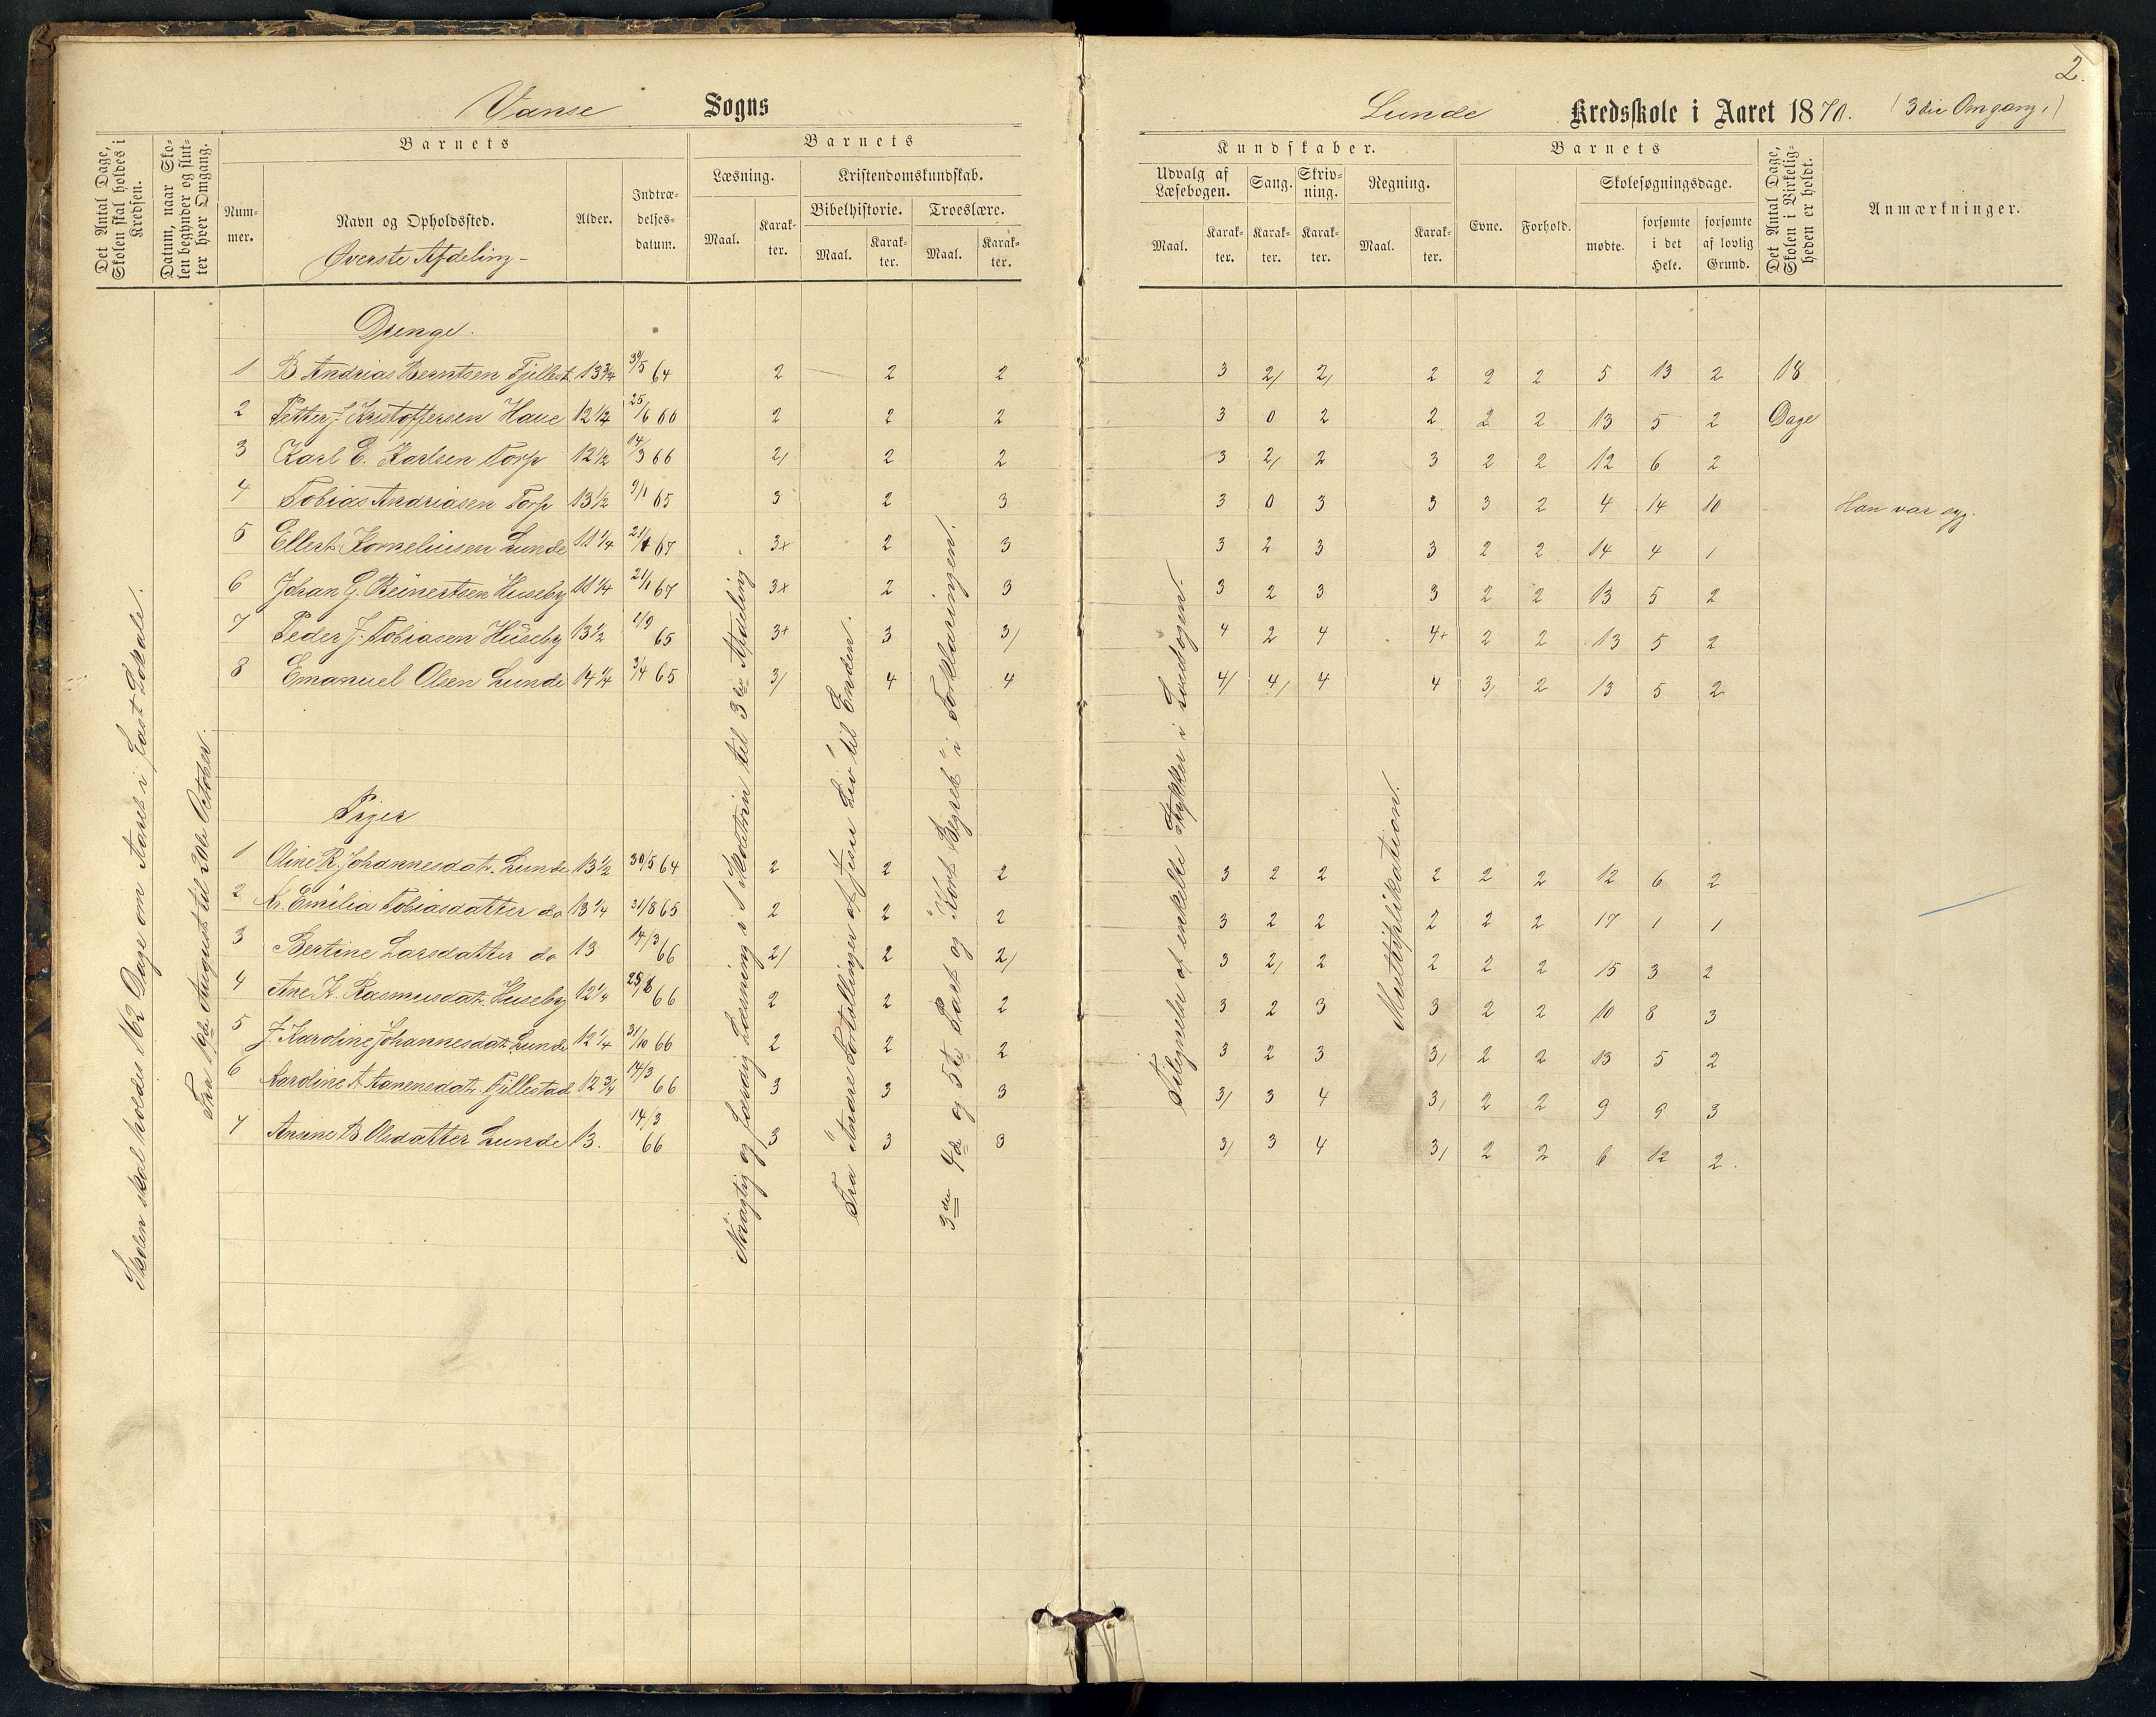 2.
Vanse Sogns
Lunde Kredsskole i Aaret 1870. (3die Omgang.)
Det Antal Dage, Skolen skal holdes i Kredsen.
Datum, naar Skolen begynder og slutter hver Omgang.
Barnets
Nummer.
Navn og Opholdssted.
Øverste Afdeling -
Alder.
Indtrædelsesdatum.
Barnets
Læsning.
Maal. Karakter.
Kristendomskundskab.
Bibelhistorie.
Maal. Karakter.
Troeslære.
Maal. Karakter.
Kundskaber.
Udvalg af Læsebogen.
Maal. Karakter.
Sang.
Karakter.
Skrivning.
Karakter.
Regning.
Maal. Karakter.
Barnets
Evne. Forhold.
Skolesøgningsdage.
mødte. forsømte i det Hele. forsømte af lovlig Grund.
Det Antal Dage, Skolen i Virkeligheden er holdt.
Anmærkninger.
Skolen skal holdes 162 Dage om Aaret i fast Lokale.
Fra 1ste August til 20de October.
Nøiagtig og færdig Læsning i 1 Skoletrin til 3die Afdeling.
Fra "Andre Fortællinger af Jesu Liv" til Enden.
3die 4de og 5te Part og "Kort Begreb" i Forklaringen.
Tilegnelse af enkelte Stykker i Læsebogen.
Multiplikation.
Drenge.
1 B Andrias Berntsen Fjellest 13 3/4 30/5 64 2 2 2 3 2/ 2/ 2 2 2 5 13 2 18
2 Petter J Kristoffersen Haue 12 1/4 25/6 66 2 2 2 3 0 2 2 2 2 13 5 2 Dage
3 Karl E. Karlsen Torp 12 1/2 14/3 66 2/ 2 2 3 2/ 2 3 2 2 12 6 2
4 Tobias Andriasen Torp 13 1/2 9/1 65 3 2 3 3 0 3 3 3 2 4 14 10 Han var syg.
5 Ellert Korneliusen Lunde 11 1/4 21/1 67 3+ 2 3 3 2 3 3 2 2 14 4 1
6 Johan G. Reinertsen Huseby 11 1/4 21/1 67 3+ 2 3 3 2 3 3 2 2 13 5 2
7 Peder J. Tobiasen Huseby 13 1/2 1/9 65 3+ 3 3/ 4 2 4 4+ 2 2 13 5 2
8 Emanuel Olsen Lunde 14 1/4 3/4 65 3/ 4 4 4/ 4/ 4 4 3/ 2 13 5 2
Piger
1 Oline R. Johannesdat. Lunde 13 1/2 30/5 64 2 2 2 3 2 2 2 2 2 12 6 2
2 Emilia Tobiasdatter do 13 1/4 31/8 65 2 2 2 3 2 2 2 2 2 17 1 1
3 Bertine Larsdatter do 13 14/3 66 2/ 2 2/ 3 2/ 2 2 2 2 15 3 2
4 Ane K. Rasmusdat. Huseby 12 1/4 25/8 66 2 2 2 3 2 3 3 2 2 10 8 3
5 J. Karoline Johannesdat. Lunde 12 1/4 31/10 66 2 2 2 3 2 3 3/ 2 2 13 5 2
6 Karoline A Aanensdat. Fjellestad 12 3/4 14/3 66 3 3 3 3/ 3 4 3/ 2 2 9 9 3
7 Ansine B Olsdatter Lunde 13. 14/3 66 3 3 3 3/ 3 4 3/ 2 2 6 12 2.